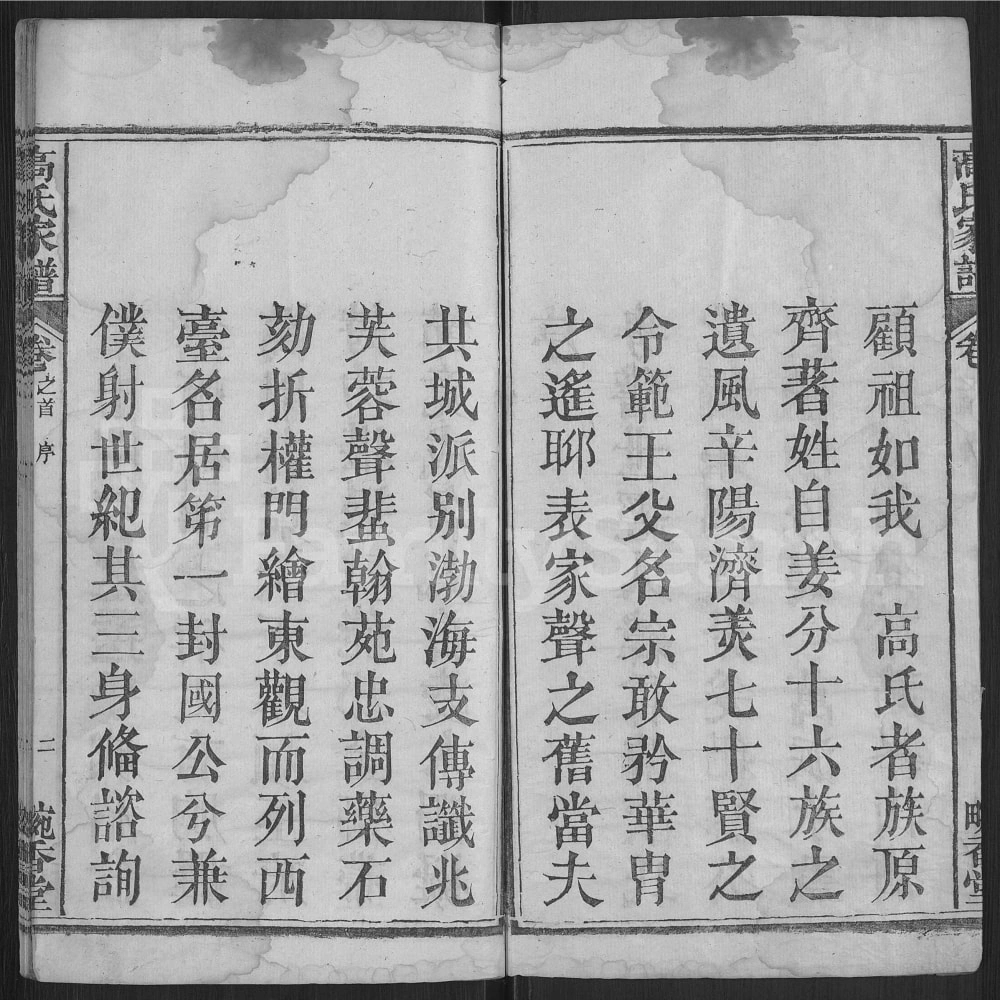 高氏家譜
卷
顧祖如我　高氏者族原
齊著姓自姜分十六族之
遺風辛陽濟羙七十賢之
令範王父名宗敢矜華胄
之遙耶表家聲之舊當夫
共城派別渤海支傳讖兆
芙蓉聲蜚翰苑忠調藥石
劾折權門繪東觀而列西
臺名居第一封國公兮兼
僕射世紀其三身俻諮詢
高氏家譜
卷之首 序
二
畹香堂